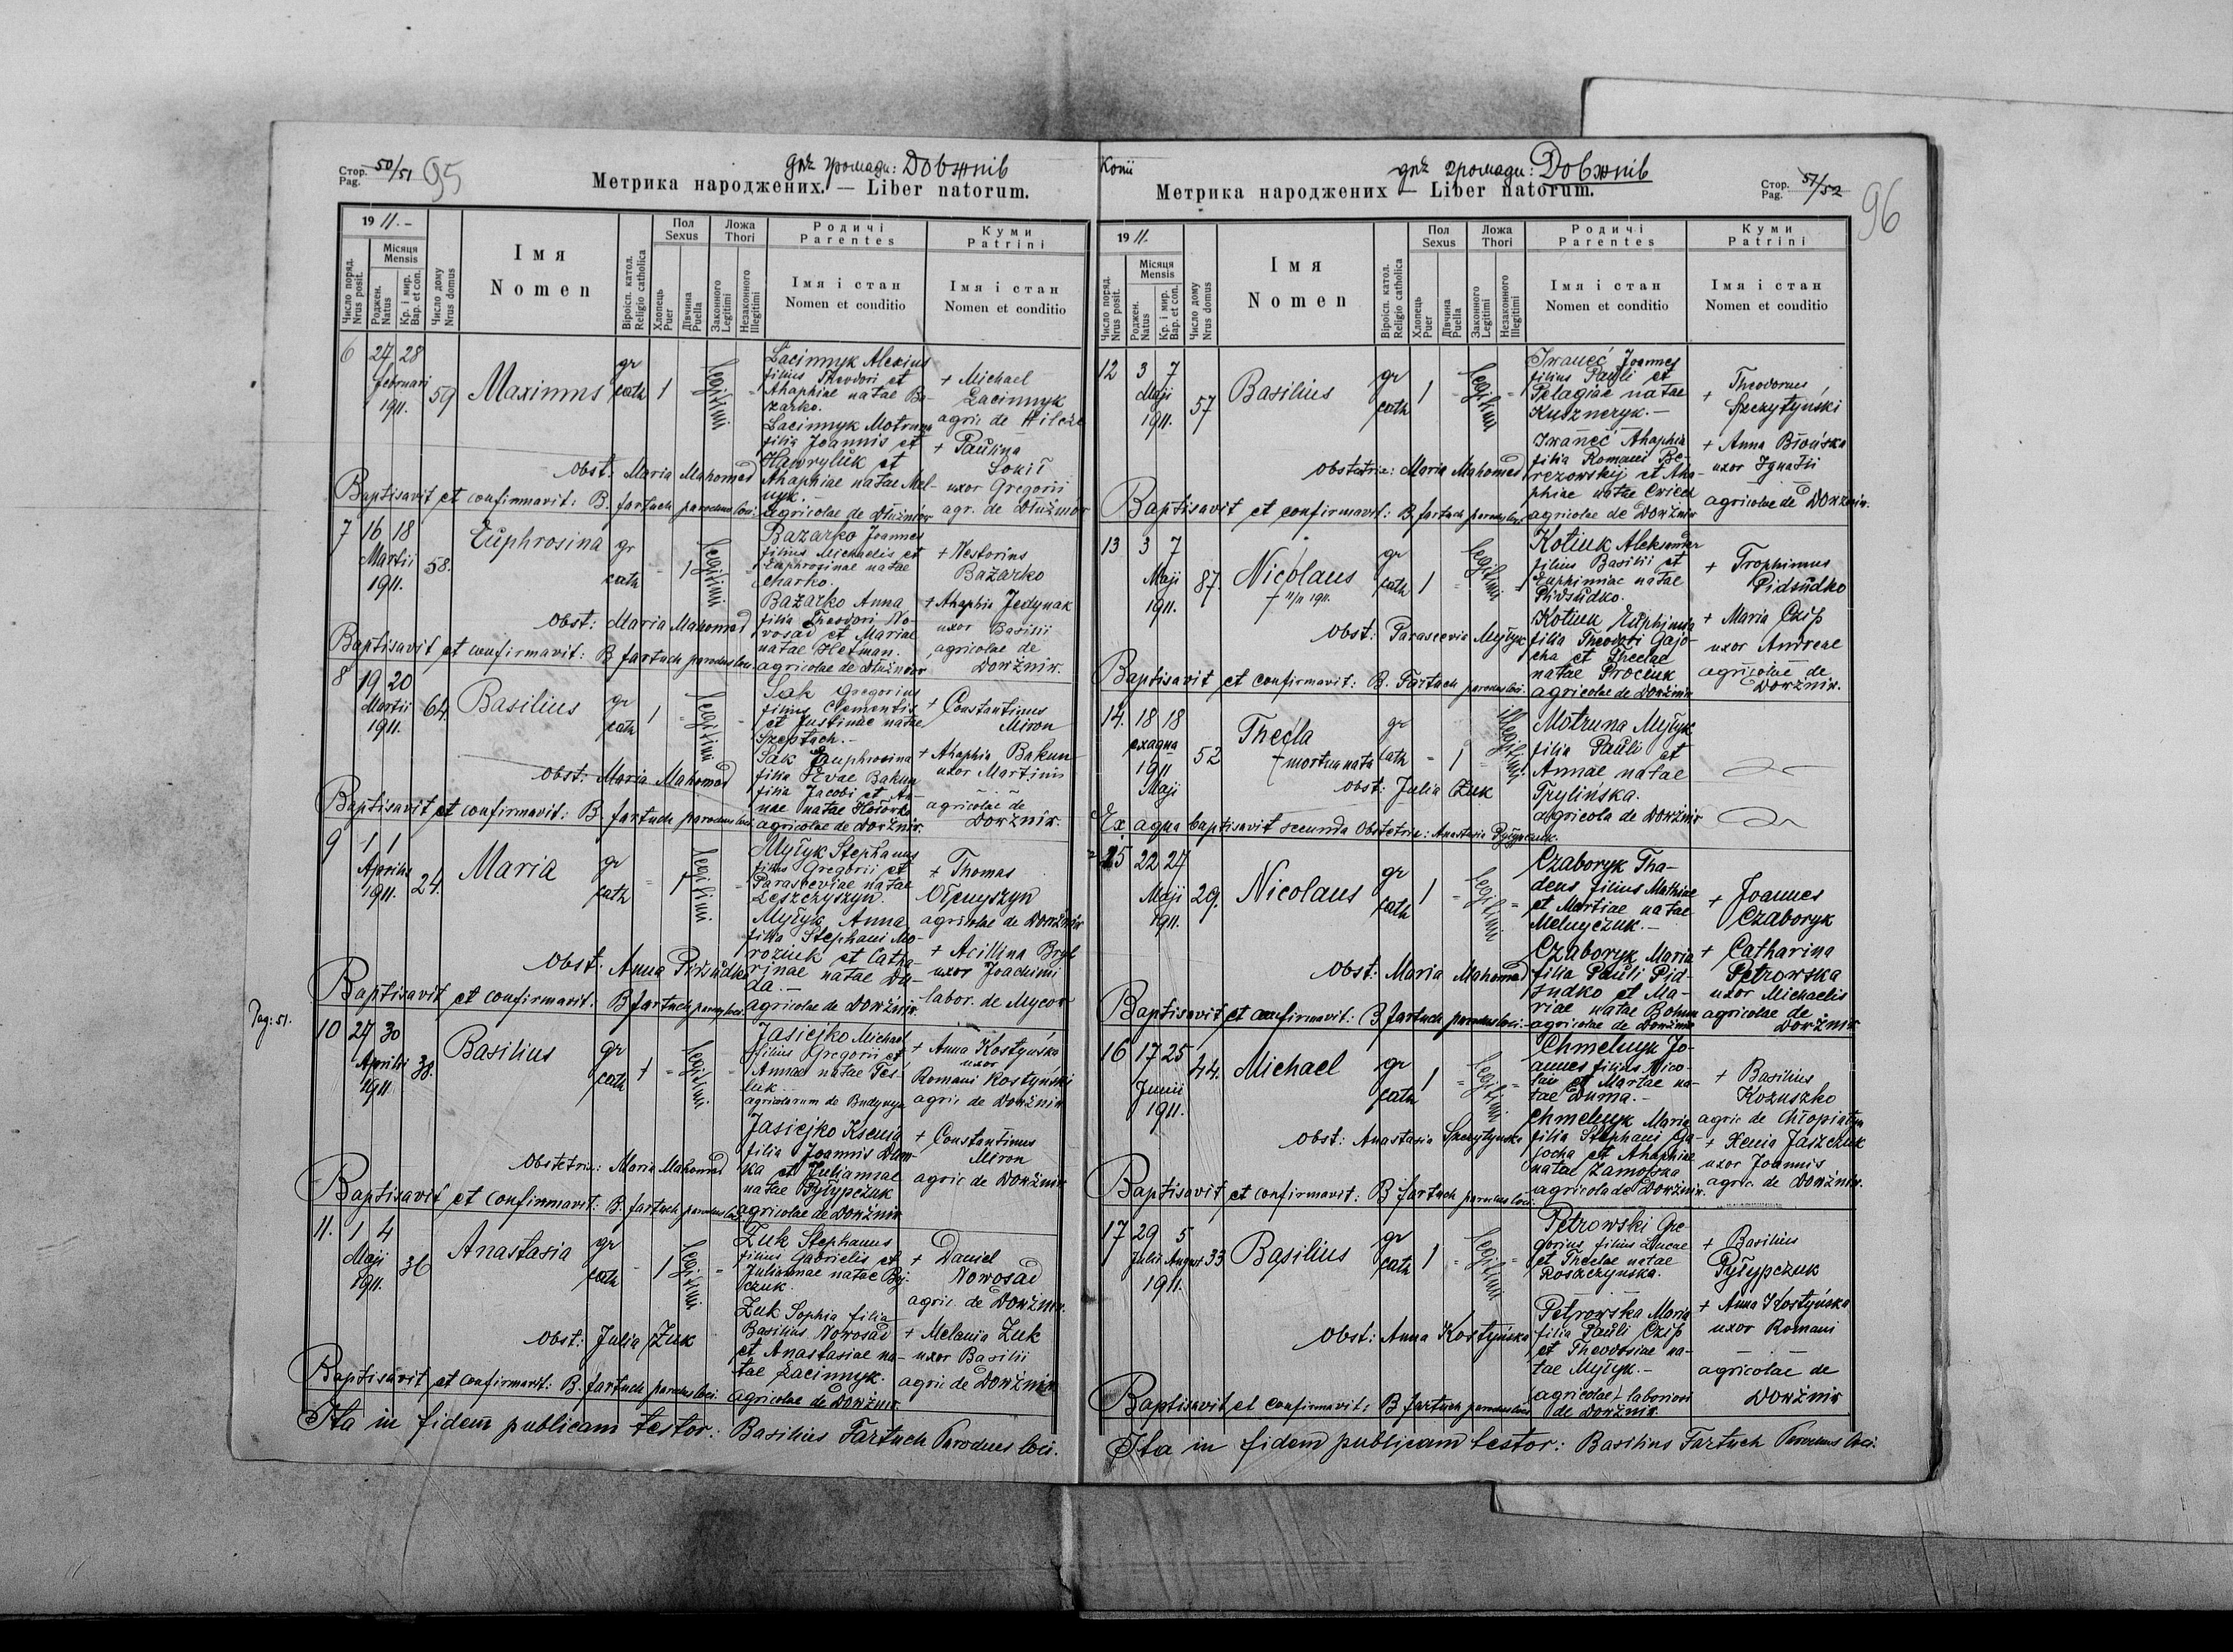 Стор. Pag. 50/51 95
для громади: Довжнів
Метрика народжених. — Liber natorum.
19 11.-
Число поряд. Nrus posit.
Місяця Mensis
Роджен. Natus
Кр. і мир. Bap. et con.
Число дому Nrus domus
Імя Nomen
Віроісп. катол. Religio catholica
Пол Sexus
Хлопець Puer
Дївчина Puella
Ложа Thori
Законного Legitimi
Незаконного Illegitimi
Родичі Parentes
Імя і стан Nomen et conditio
Куми Patrini
Імя і стан Nomen et conditio
6 27 28 februari 1911. 59 Maximus gr cath 1 legitimi
Łacinnyk Alexius
filius Theodori et
Ahaphiae natae Ba-
zarko.
Łacinnyk Motruna
filia Joannis et
Hawryluk et
Ahaphiae natae Mel-
nyk.
agricolae de Dłużniów
+ Michael
Łacinnyk
agric de
+ Paulina
Sokił
uxor Gregorii
agr. de Dłużniów
Obst: Maria Mahomed
Baptisavit et confirmavit: B. Fartuch parochus loci.
7 16 18 Martii 1911. 58. Euphrosina gr cath - 1 legitimi
Bazarko Joannes
filius Michaelis et
Euphrosinae natae
Charko.
Bazarko Anna
filia Theodori No-
vosad et Mariae
natae Hetman.
agricolae de Dłużniów
+ Nestorius
Bazarko
+ Ahaphia Jedynak
uxor Basilii
agricolae de
Dowżniw.
Obst: Maria Mahomed
Baptisavit et confirmavit: B fartuch parochus loci.
8 19 20 Martii 1911. 64. Basilius gr cath 1 legitimi
Sak Gregorius
filius Clementis
et Justinae natae
Szeptach.-
Sak Euphrosina
filia Evae Bakun
filia Jacobi et An-
nae natae
agricolae de Dowżniw.
+ Constantinus
Miron
+ Ahaphia Bakun
uxor Martini
agricolae de
Dowżniw.
Obst: Maria Mahomed
Baptisavit et confirmavit: B. fartuch parochus loci.
9 1 1 Aprilis 1911. 24. Maria gr cath - 1 legitimi
Myłyk Stephanus
filius Gregorii et
Parasceviae natae
Leszczyszyn.
Myłyk Anna
filia Stephani Mo-
roziuk et Catha-
rinae natae Du-
da.-
agricolae de Dowżniw.
+ Thomas
agricolae de Dowżniw
+ Acillina Bryl
uxor Joachimi
labor. de Mycow
Obst: Anna Pidsudko
Baptisavit et confirmavit: B fartuch paroch loci.
Pag: 51.
10 27 30 Aprilis 1911 38. Basilius gr cath 1 legitimi
Jasiejko Michael
filius Gregorii et
Annae natae Tes-
luk.
agricolarum de Budynyn
Jasiejko Ksenia
filia Joannis Dum-
ka et Juliannae
natae Pyłypczuk
agricolae de Dowżniw
+ Anna Kostyńska
uxor
Romani Kostyński
agric de Dowżniw
+ Constantinus
Miron
agric de Dowżniw
Obstetrix: Maria Mahomed
Baptisavit et confirmavit: B. fartuch parochus loci.
11. 1 4 Maji 1911. 36 Anastasia gr cath - 1 legitimi
Żuk Stephanus
filius Gabrielis et
Juliannae natae
czuk.
Żuk Sophia filia
Basilius Nowosad
et Anastasiae na-
tae Łacinnyk.
agricolae de Dowżniw
+ Daniel
Nowosad
agric. de Dowżniw.
+ Melania Żuk
uxor Basilii
agric de Dowżniw
Obst: Julia Żuk
Baptisavit et confirmavit: B. fartuch parochus loci.
Ita in fidem publicam testor: Basilius Fartuch Parochus loci.
Копії
для громади: Довжнів
Метрика народжених — Liber natorum.
Стор. Pag. 51/52 96
19 11.
Число поряд. Nrus posit.
Місяця Mensis
Роджен. Natus
Кр. і мир. Bap. et con.
Число дому Nrus domus
Імя Nomen
Віроісп. катол. Religio catholica
Пол Sexus
Хлопець Puer
Дївчина Puella
Ложа Thori
Законного Legitimi
Незаконного Illegitimi
Родичі Parentes
Імя і стан Nomen et conditio
Куми Patrini
Імя і стан Nomen et conditio
12 3 7 Maji 1911. 57 Basilius gr cath 1 legitimi
Iwaneć Joannes
filius Pauli et
Pelagiae natae
Kuszneryk.-
Iwaneć Ahaphia
filia Romani Be-
rezowskij et Aha-
phiae natae Ćwiech
agricolae de Dowżniw
+ Theodorus
Szczytyński
+ Anna Błońska
uxor Ignatii
agricolae de Dowżniw.
Obstetrix: Maria Mahomed
Baptisavit et confirmavit: B fartuch parochus loci
13 3 7 Maji 1911. 87. Nicolaus gr cath 1 legitimi
Kotiuk Aleksander
filius Basilii et
Euphimiae natae
Pidsudko.
Kotiuk Euphimia
filia Theodori Gajo-
cha et Theclae
natae Prociuk
agricolae de Dowżniw
+ Trophimus
Pidsudko
+ Maria Czip
uxor Andreae
agricolae de
Dowżniw.
Obst: Parascevia Myłyk
Baptisavit et confirmavit: B. Fartuch parochus loci.
14. 18 18 ex aqua 1911 Maji 52 Thecla
+ mortua nata gr cath - 1 illegitimi
Motruna Myłyk
filia Pauli et
Annae natae
Trylińska.
agricola de Dowżniw
Obst: Julia Żuk
Ex aqua baptisavit secunda Obstetrix: Anastasia
15 22 27 Maji 1911. 29. Nicolaus gr cath 1 legitimi
Czaboryk Tha-
deus filius Mathiae
et Martiae natae
Melnyczuk.-
Czaboryk Maria
filia Pauli Pid-
sudko et Ma-
riae natae Bohun
agricolae de Dowżniw
+ Joannes
Czaboryk
+ Catharina
Petrowska
uxor Michaelis
agricolae de
Dowżniw
Obst: Maria Mahomed
Baptisavit et confirmavit: B fartuch parochus loci.
16 17 25 Junii 1911. 44. Michael gr cath 1 legitimi
Chmelnyk Jo-
annes filius Nico-
lai et Martae na-
tae Duma.-
Chmelnyk Maria
filia Stephani Ga-
jocha et Ahaphiae
natae Zamojska
agricola de Dowżniw.
+ Basilius
Kozuszko
agric de Chłopiatyn
+ Xenia Jaszczuk
uxor Joannis
agric. de Dowżniw.
Obst: Anastasia Szczytynska
Baptisavit et confirmavit: B fartuch parochus loci.
17 29 5 Julii August 1911. 33 Basilius gr cath 1 legitimi
Petrowski Gre-
gorius filius Lucae
et Theclae natae
Roszczynska.
Petrowska Maria
filia Pauli Czip
et Theodosiae na-
tae Myłyk.-
agricolae laboriosi
de Dowżniw.
+ Basilius
Pyłypczuk
+ Anna Kostyńska
uxor Romani
agricolae de
Dowżniw
Obst: Anna Kostyńska
Baptisavit et confirmavit: B fartuch parochus loci
Ita in fidem publicam testor: Basilius Fartuch Parochus loci.